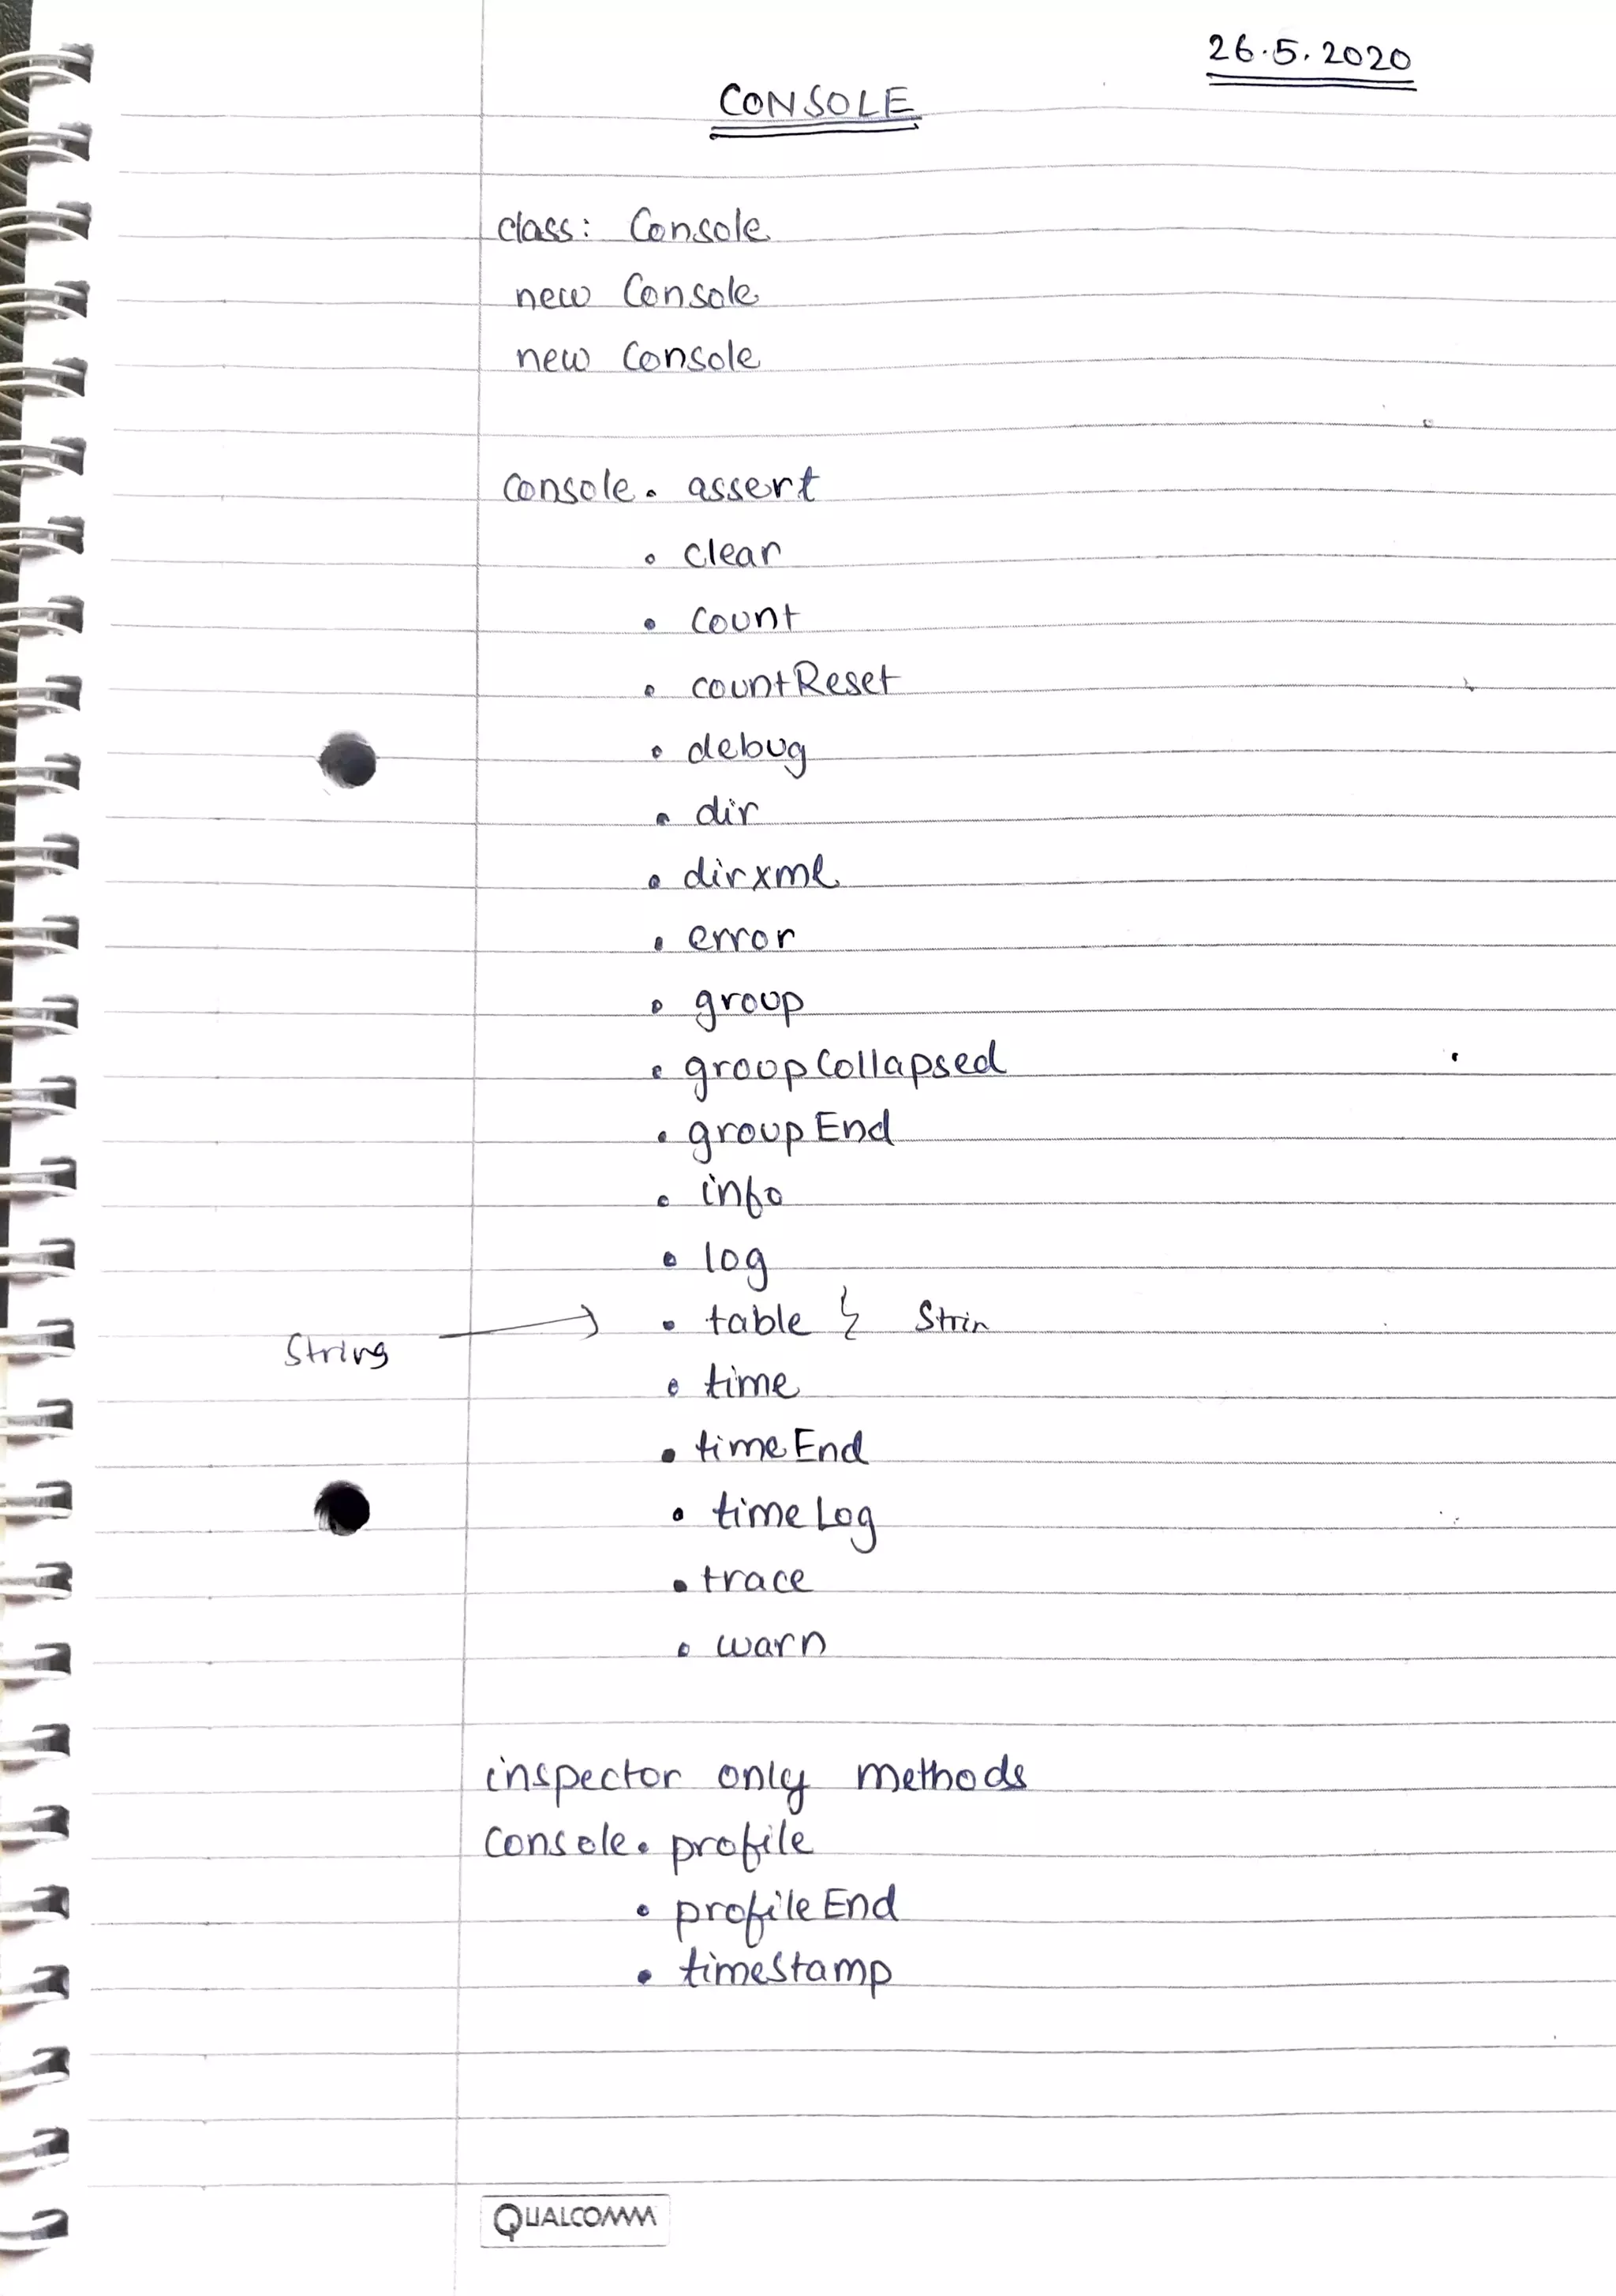 26.5.2020
CONSOLE
class: Console
new Console
new Console
console. assert
. clear
. count
. countReset
. debug
. dir
. dirxml
. error
. group
. groupCollapsed
. groupEnd
. info
. log
String → . table } Strin
. time
. timeEnd
. timeLog
. trace
. warn
inspector only methods
console. profile
. profileEnd
. timeStamp
QUALCOMM